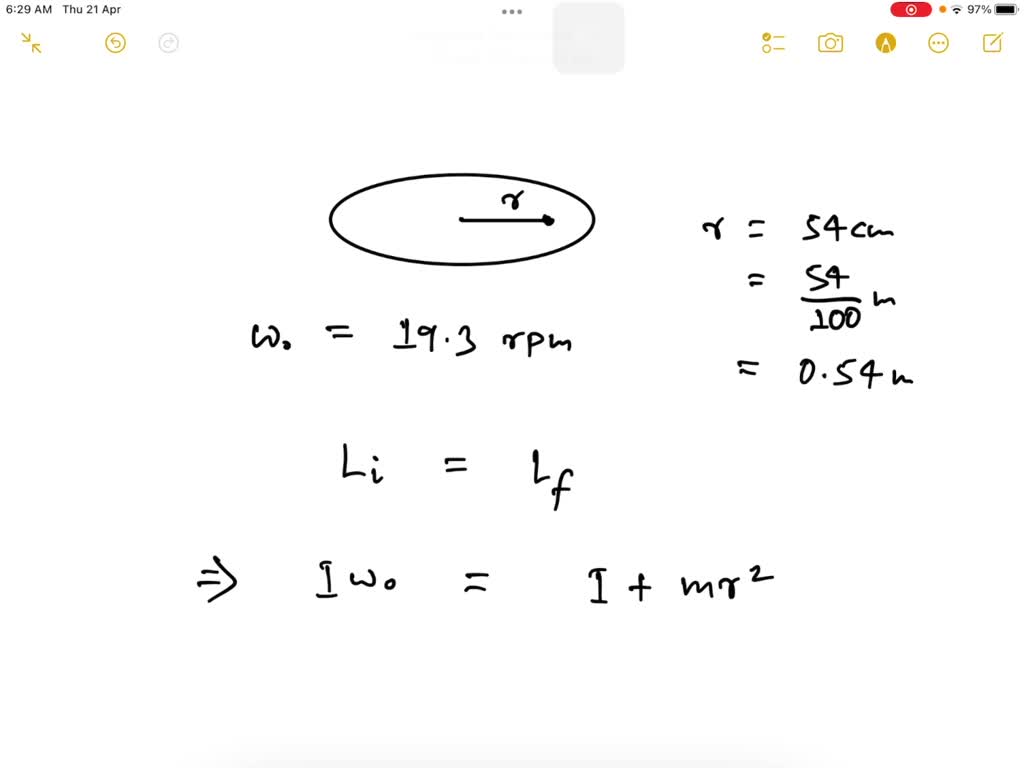 6:29 AM Thu 21 Apr 97%
r
r = 54 cm
= 54/100 m
ω₀ = 19.3 rpm
= 0.54 m
Li = Lf
⇒ Iω₀ = I + mr²